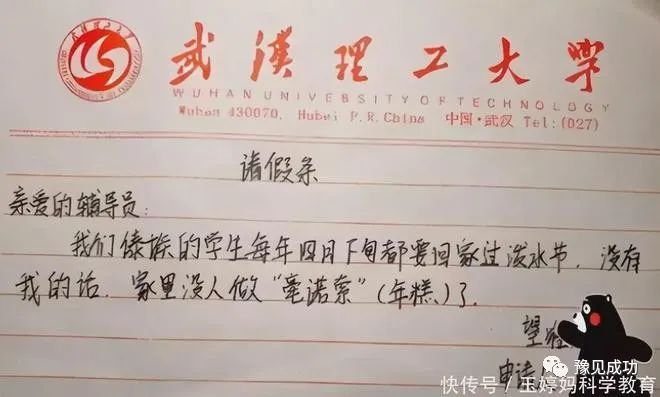 武汉理工大学
武漢理工大学
WUHAN UNIVERSITY OF TECHNOLOGY
Wuhan 430070, Hubei P.R.China 中国·武汉 Tel:(027)
请假条
亲爱的辅导员:
我们傣族的学生每年四月下旬都要回家过泼水节，没有
我的话，家里没人做“毫诺索”(年糕)了.
望
申请
豫见成功
快传号／玉婷妈科学教育